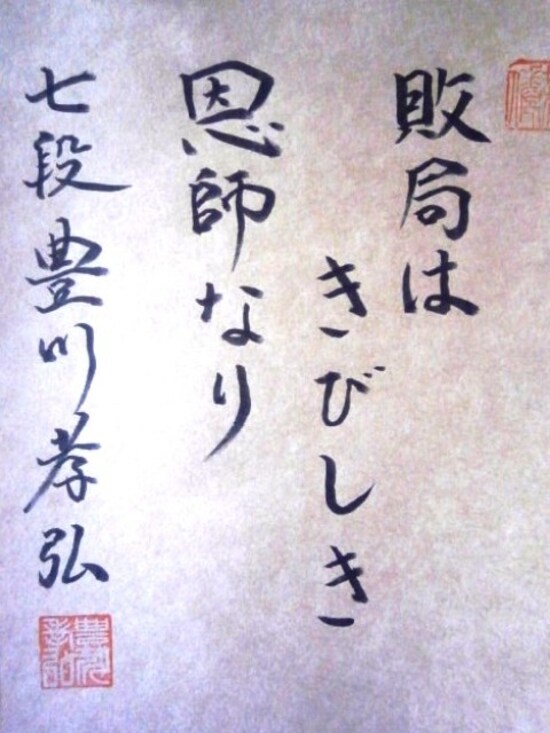 敗局は
きびしき
恩師なり
七段豊川孝弘